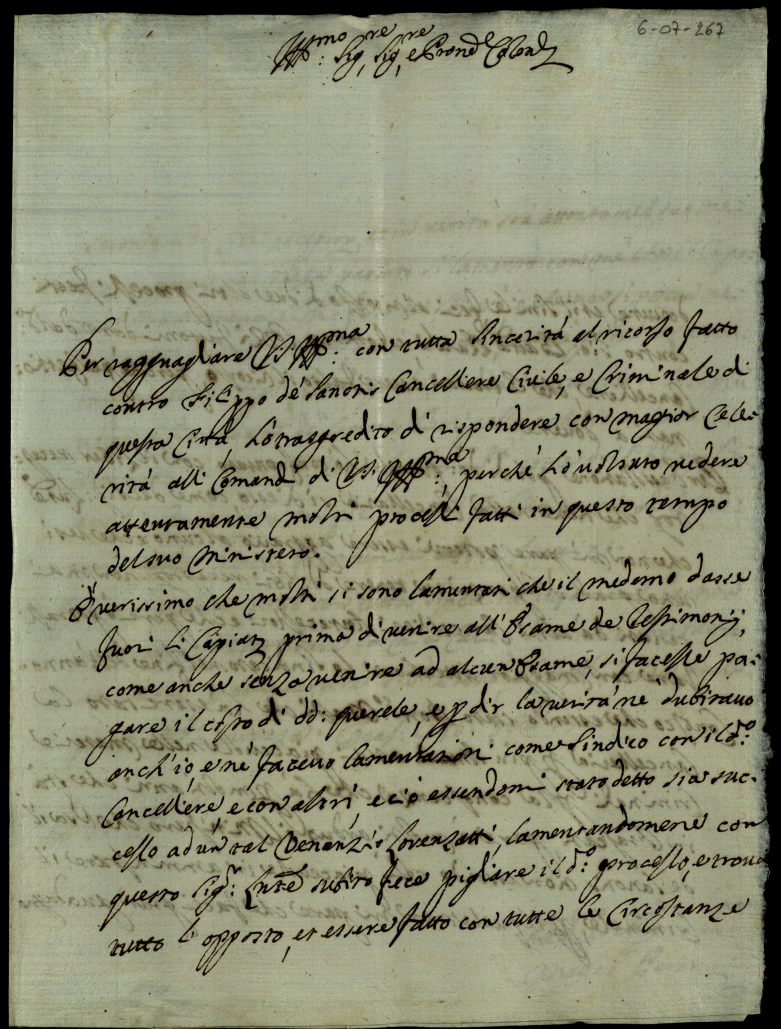 6-07-267
Ill:mo Sig,re Sig,re e Pron
Per ragguagliare VS: Ill:ma con tutta Sincerità al ricorso fatto
contro Filippo de' Sanctis Cancelliere Civile, e Criminale di
questa Città, hò trasgredito di rispondere con maggior Cele-
rità alli Comandi di VS: Ill:ma perche hò voluto vedere
attentamente molti processi fatti in questo tempo
del suo Ministero.
È verissimo che molti si sono lamentati che il medemo dasse
fuori li Capiatur prima di venire all'Esame de Testimonij,
come anche senza venire ad alcun Esame, si facesse pa-
gare il costo di dd: querele, e p dir la verità nè dubitavo
anch'io, e nè facevo lamentationi come Sindico con il d:o
Cancelliere, e con altri, e ciò essendomi stato detto sia suc-
cesso ad un tal Venanzio Lorenzatti, lamentandomene con
questo Sig:r Lnte subito fece pigliare il d:o processo, e trovo
tutto l'opposto, et essere fatto con tutte le Circostanze